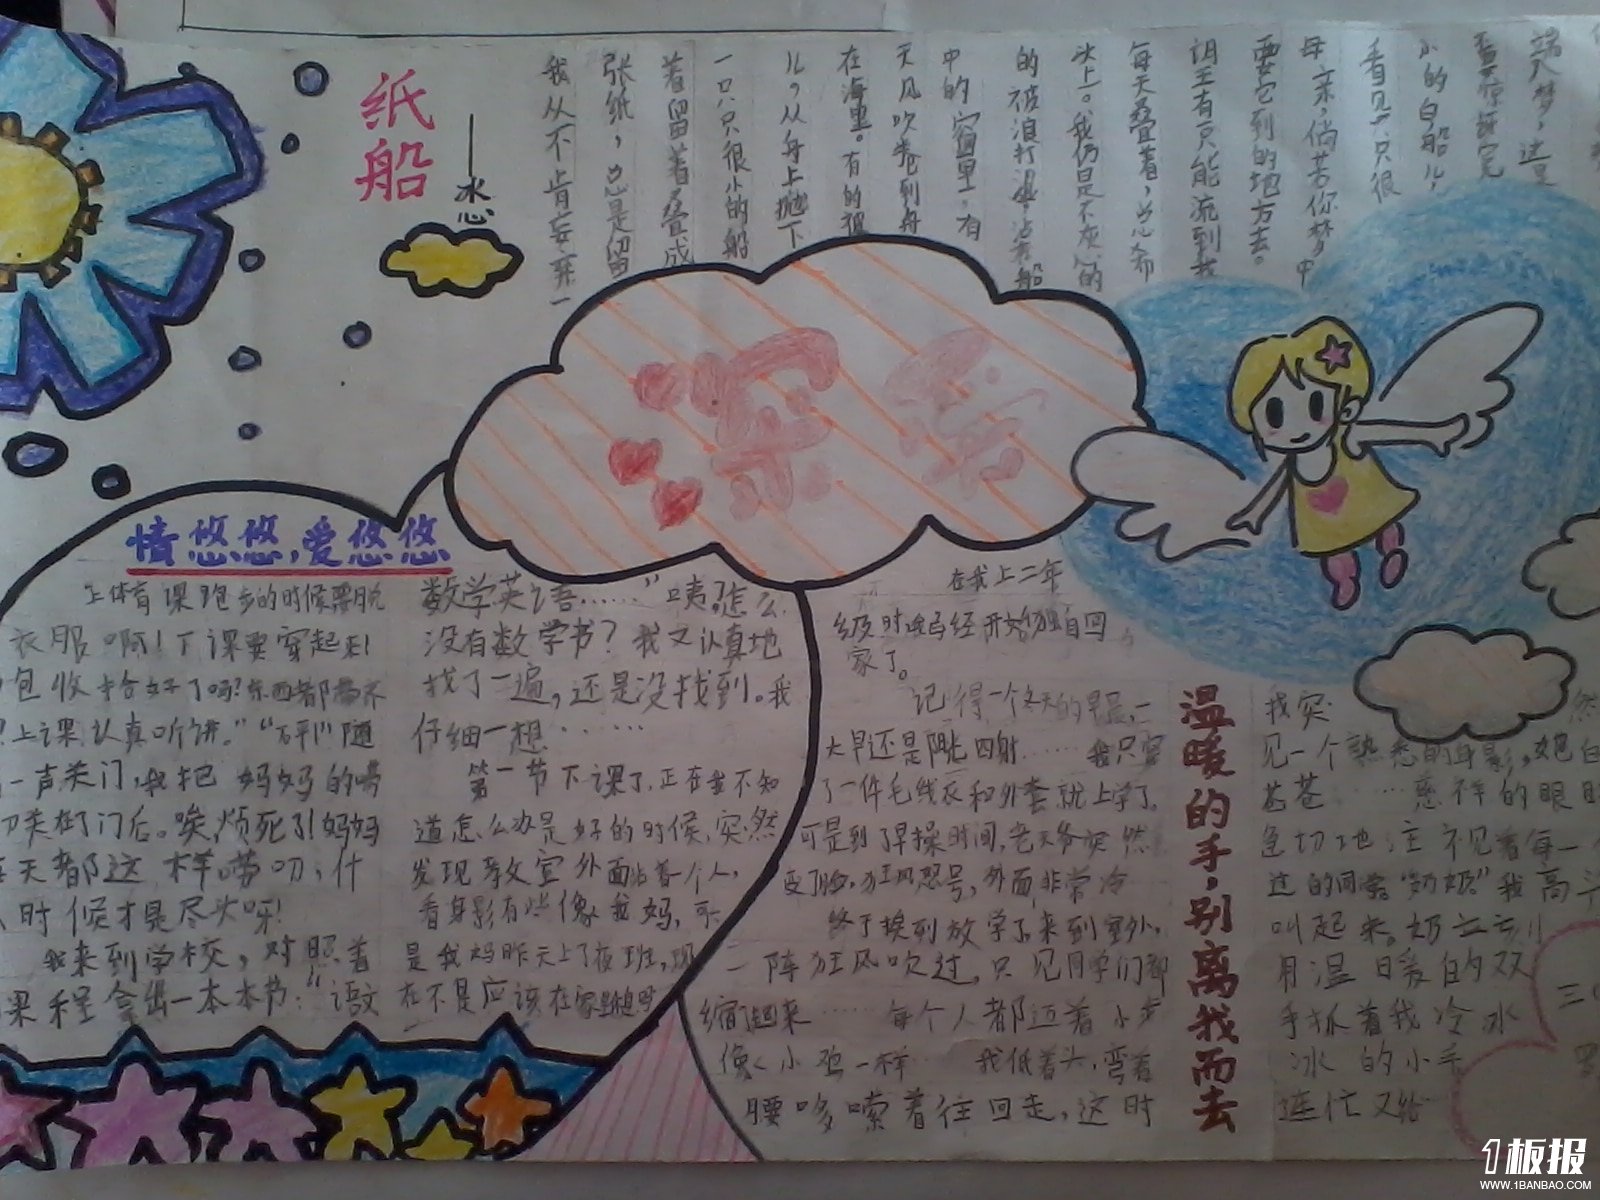 纸船
冰心
我从不肯妄弃一
张纸，总是留
着留着叠成
一只只很小的船
儿，从舟上抛下
在海里。有的被
天风吹卷到舟
中的窗里，有
的被浪打湿，沾在船
头上。我仍是不灰心的
每天叠着，总希
望有一只能流到我
要它到的地方去。
母亲，倘若你梦中
看见一只很
小的白船儿，
不要惊讶它
无端入梦，这是
深 爱
情悠悠，爱悠悠
上体育课跑步的时候要脱
衣服啊！下课要穿起来！
包收拾好了吗？东西都带齐
上课认真听讲。”“砰！”随
一声关门，我把妈妈的唠
叨关在了门后。唉，烦死了！妈妈
天都这样唠叨，什
时候才是尽头呀！
我来到学校，对照着
课程拿出一本本书：“语文
数学英语……”咦，怎么
没有数学书？我又认真地
找了一遍，还是没找到。我
仔细一想……
第一节下课了，正在我不知
道怎么办是好的时候，突然
发现教室外面站着个人，
看身影有些像我妈，可
是我妈昨天上了夜班，现
在不是应该在家睡觉吗
温暖的手，别离我而去
在我上二年
级时我已经开始独自回
家了。
记得一个冬天的早晨，一
大早还是阳光四射……我只穿
了一件毛线衣和外套就上学了。
可是到了早操时间，老天爷突然
变了脸，狂风怒号，外面非常冷
终于挨到放学了，来到室外，
一阵狂风吹过，只见同学们都
缩了起来……每个人都迈着小步
像小鸡一样 我低着头，弯着
腰哆嗦着往回走，这时
我突 然
见一个熟悉的身影，她白
苍苍……慈祥的眼
急切地注视着每一
过的同学“奶奶”我高声
叫起来。奶立刻
用温暖的双
手抓着我冷冰
冰的小手
连忙又给
1板报
WWW.1BANBAO.COM